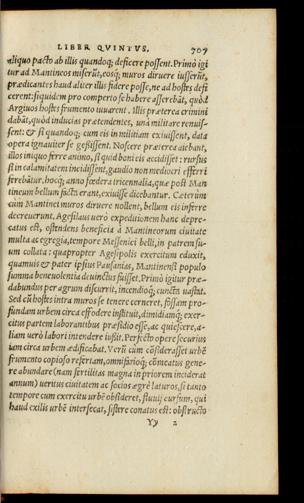 LIBER QVINTVS. 707
aliquo pacto ab illis quandoq; deficere possent. Primò igi
tur ad Mantineos miserũt, eosq; muros diruere iusserũt,
prædicantes haud aliter illis fidere posse, ne ad hostes defi
cerent: siquidem pro comperto se habere asserebãt, quòd
Argiuos hostes frumento iuuarent. Illis præterea crimini
dabãt, quòd inducias prætendentes, unà militare renuis=
sent: & si quandoq; cum eis in militiam exiuissent, data
opera ignauiter se gessissent. Noscere præterea aiebant,
illos iniquo ferre animo, si quid boni eis accidisset: rursus
si in calamitatem incidissent, gaudio non mediocri efferri
ferebãtur. hocq; anno fœdera tricennalia, quæ post Man
tineum bellum facta erant, exiuisse dicebantur. Cæterùm
cùm Mantinei muros diruere nollent, bellum eis inferre
decreuerunt. Agesilaus uerò expeditionem hanc depre=
catus est, ostendens beneficia à Mantineorum ciuitate
multa ac egregia, tempore Messenici belli, in patrem su=
um collata: quapropter Agesipolis exercitum eduxit,
quamuis & pater ipsius Pausanias, Mantinensi populo
summa beneuolentia deuinctus fuisset. Primò igitur præ=
dabundus per agrum discurrit, incendioq; cuncta uastat.
Sed cũ hostes intra muros se tenere cerneret, fossam pro=
fundam urbem circa effodere instituit, dimidiamq; exer=
citus partem laborantibus præsidio esse, ac quiescere, a=
liam uerò labori intendere iußit. Perfecto opere securius
iam circa urbem ædificabat. Verũ cùm cõsiderasset urbẽ
frumento copioso refertam, omnifariamq; cõmeatus gene=
re abundare (nam fertilitas magna in priorem inciderat
annum) ueritus ciuitatem ac socios ægrè laturos, si tanto
tempore cum exercitu urbẽ obsideret, fluuij cursum, qui
haud exilis urbẽ intersecat, sistere conatus est: obstructo
Yy 2